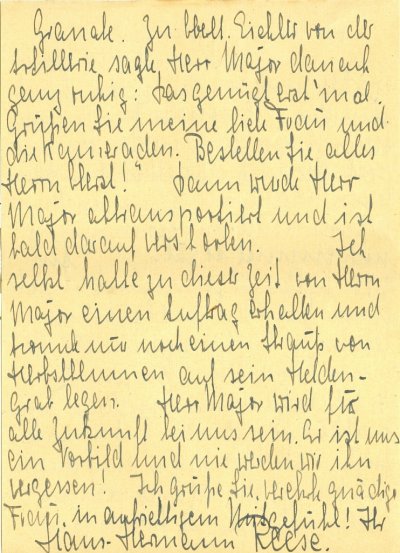 Granate. Zu Oblt. Eichler von der
Artillerie sagte Herr Major danach
ganz ruhig: "Das genügt erst 'mal.
Grüßen Sie meine liebe Frau und
die Kameraden. Bestellen Sie alles
Herrn Oberst!" Dann wurde Herr
Major abtransportiert und ist
bald darauf verstorben. Ich
selbst hatte zu dieser Zeit von Herrn
Major einen Auftrag erhalten und
konnte nur noch einen Strauß von
Herbstblumen auf sein Helden-
grab legen. Herr Major wird für
alle Zukunft bei uns sein. Er ist uns
ein Vorbild und nie werden wir ihn
vergessen! Ich grüße Sie, verehrte gnädige
Frau, in aufrichtigem Mitgefühl! Ihr
Hans-Hermann Reese.